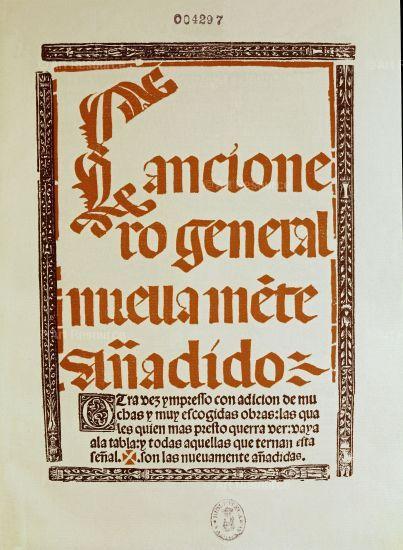 004297
Cancione
ro general
nueuamẽte
Añadido
Otra vez ympresso con adicion de mu
chas y muy escogidas obras: las qua
les quien mas presto querra ver: vaya
ala tabla: y todas aquellas que ternan esta
señal. .son las nueuamente añadidas.